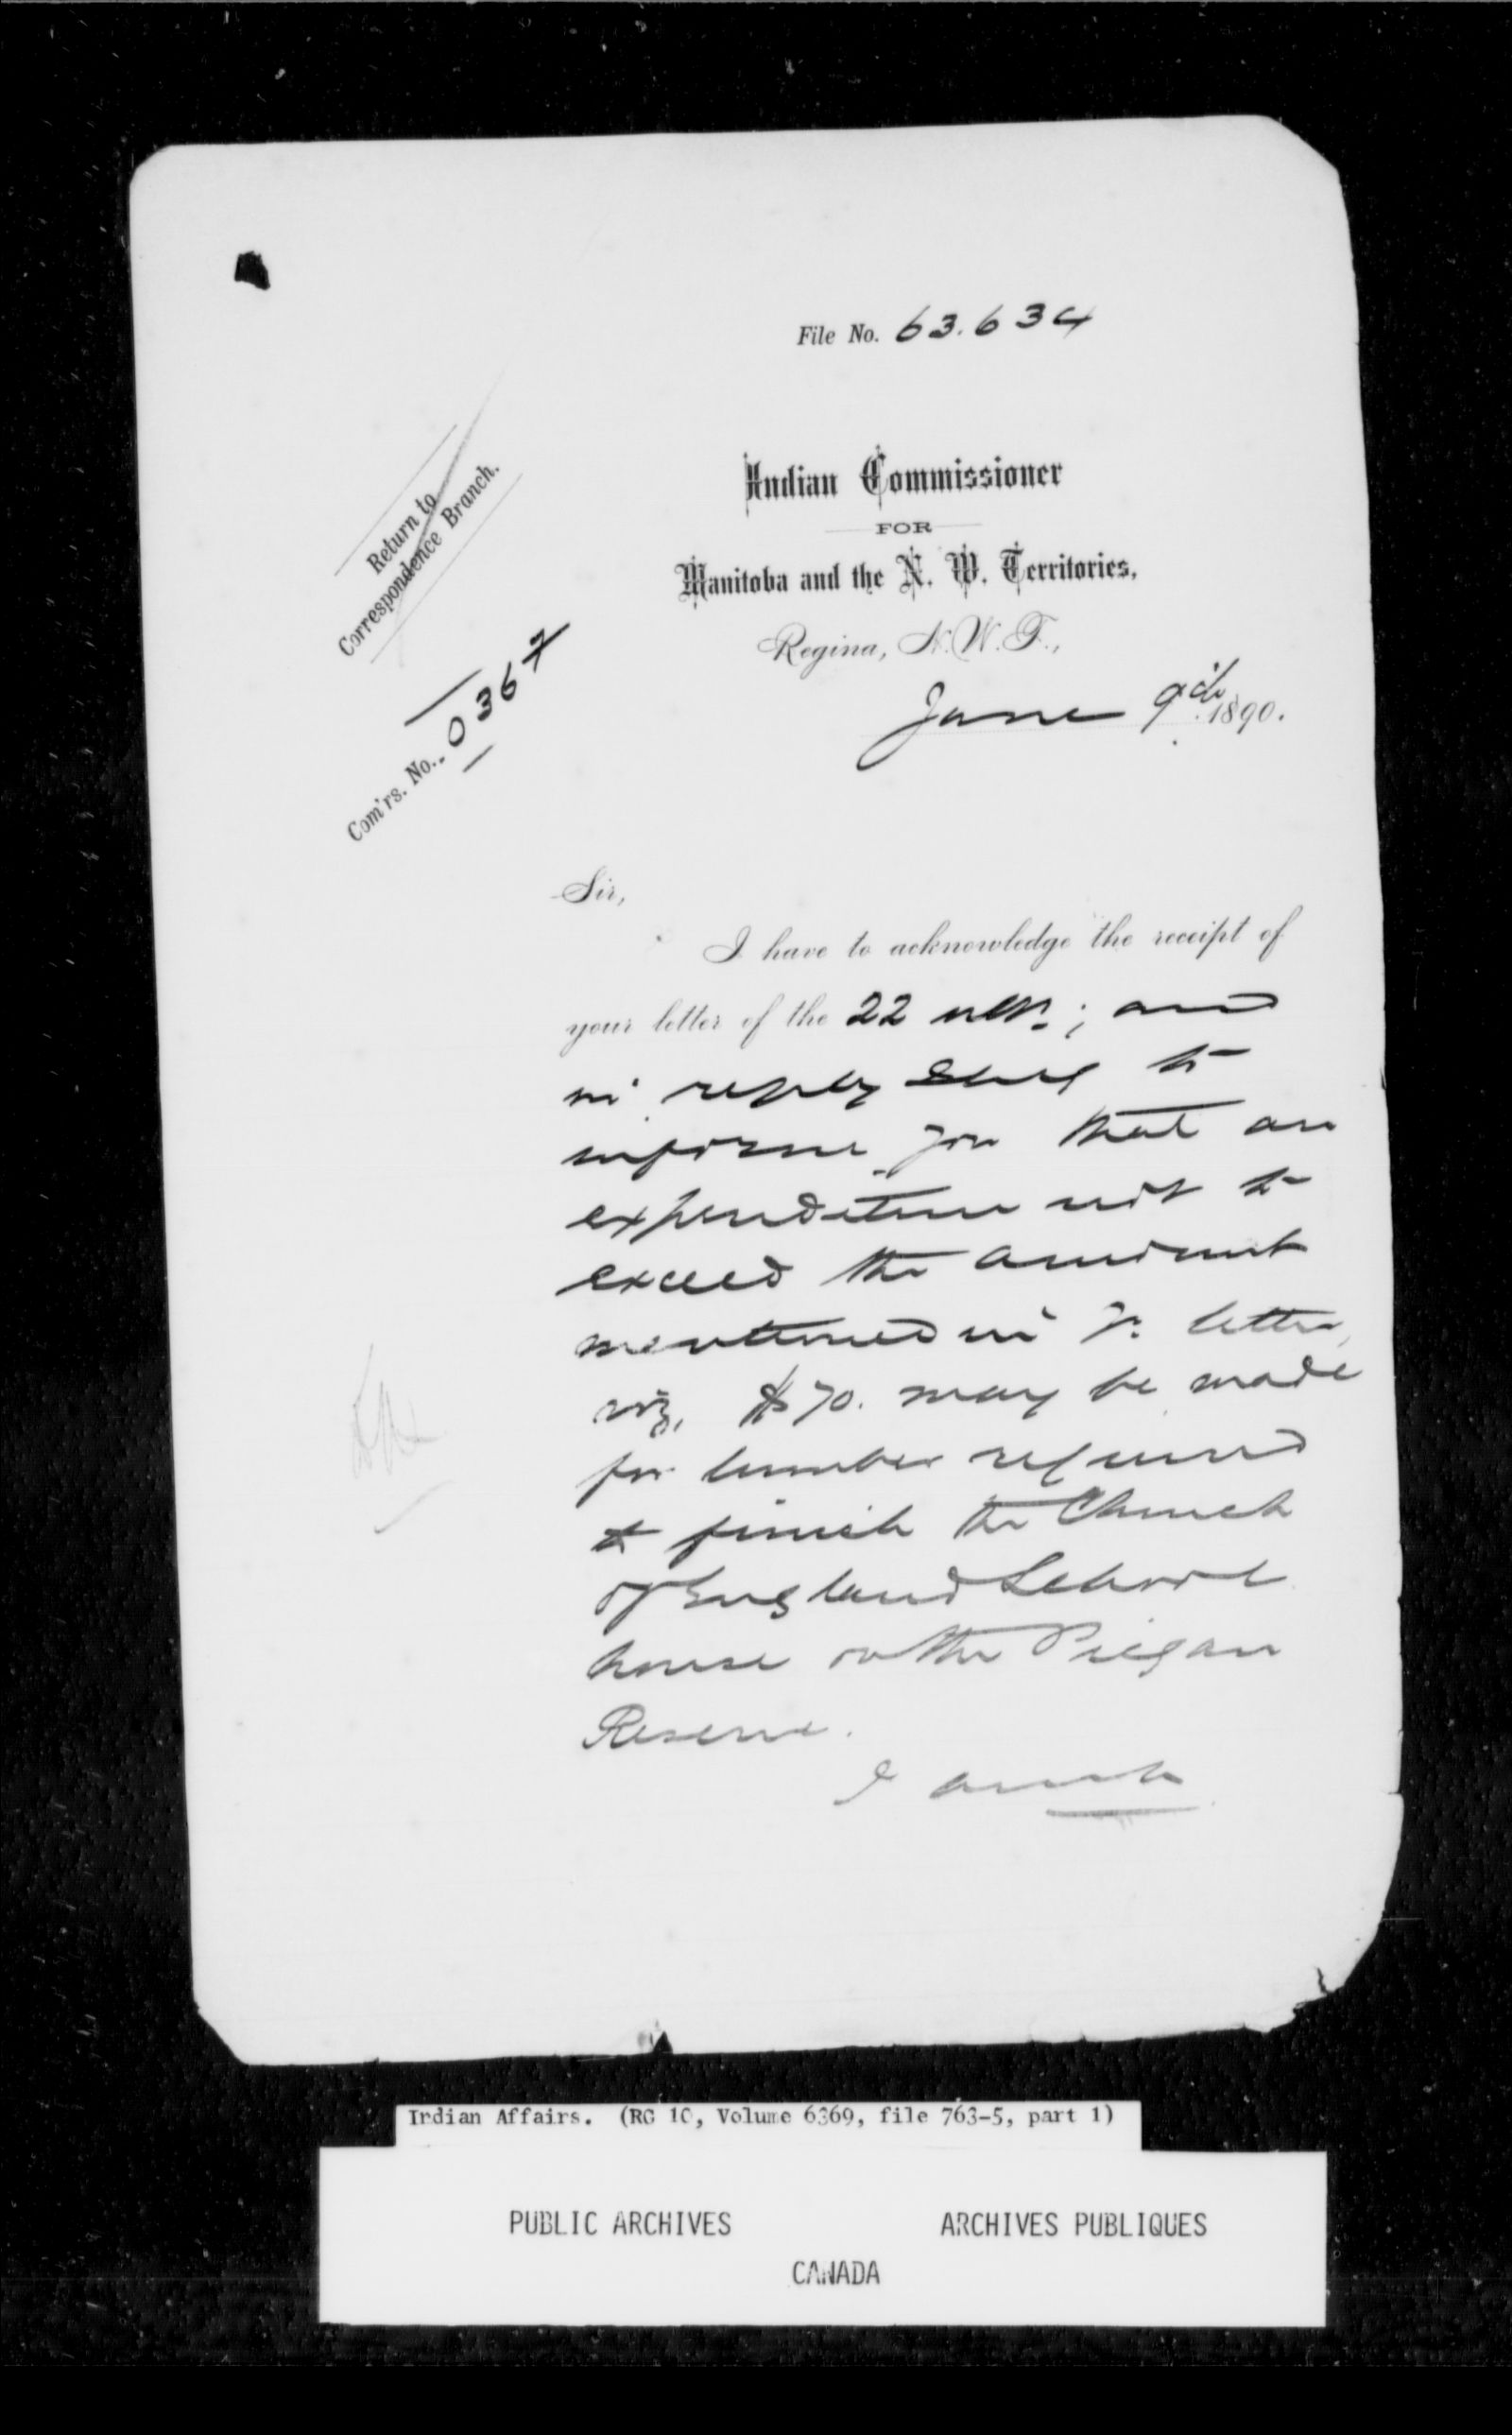 File No. 63.634
Return to
Correspondence Branch.
Com'rs. No. 0367
Indian Commissioner
FOR
Manitoba and the N. W. Territories,
Regina, N.W.T.,
June 9th 1890.
Sir,
I have to acknowledge the receipt of
your letter of the 22 ulto.; and
in reply beg to
inform you that an
expenditure not to
exceed the amount
mentioned in yr. letter,
viz, $70. may be made
for lumber required
to finish the Church
of England School
house on the Piegan
Reserve.
I am
Indian Affairs. (RG 10, Volume 6369, file 763-5, part 1)
PUBLIC ARCHIVES ARCHIVES PUBLIQUES
CANADA